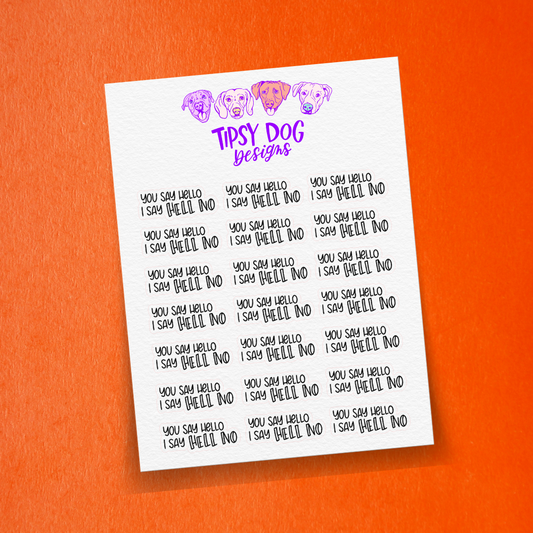 TIPSY DOG
Designs
YOU SAY HELLO YOU SAY HELLO YOU SAY HELLO
I SAY HELL NO I SAY HELL NO I SAY HELL NO
YOU SAY HELLO YOU SAY HELLO YOU SAY HELLO
I SAY HELL NO I SAY HELL NO I SAY HELL NO
YOU SAY HELLO YOU SAY HELLO YOU SAY HELLO
I SAY HELL NO I SAY HELL NO I SAY HELL NO
YOU SAY HELLO YOU SAY HELLO YOU SAY HELLO
I SAY HELL NO I SAY HELL NO I SAY HELL NO
YOU SAY HELLO YOU SAY HELLO YOU SAY HELLO
I SAY HELL NO I SAY HELL NO I SAY HELL NO
YOU SAY HELLO YOU SAY HELLO YOU SAY HELLO
I SAY HELL NO I SAY HELL NO I SAY HELL NO
YOU SAY HELLO YOU SAY HELLO YOU SAY HELLO
I SAY HELL NO I SAY HELL NO I SAY HELL NO